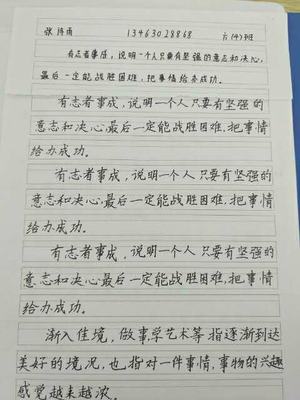 张诗雨 13463028868 六(4)班
有志者事成,说明一个人只要有坚强的意志和决心,
最后一定能战胜困难,把事情给办成功。
有志者事成,说明一个人只要有坚强的
意志和决心最后一定能战胜困难,把事情
给办成功。
有志者事成,说明一个人只要有坚强的
意志和决心最后一定能战胜困难,把事情
给办成功。
有志者事成,说明一个人只要有坚强的
意志和决心最后一定能战胜困难,把事情
给办成功。
渐入佳境,做事,学艺术等指逐渐到达
美好的境况,也指对一件事情,事物的兴趣
感觉越来越浓。